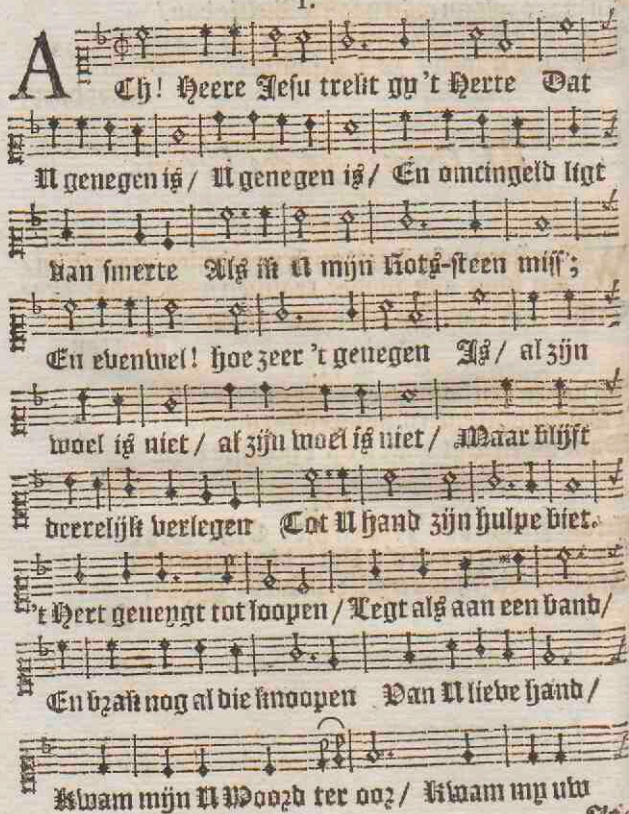 1.
ACh! Heere Jesu trekt gy 't Herte Dat
U genegen is / U genegen is / En omcingeld ligt
van smerte Als ik U mijn Rots-steen miss';
En evenwel! hoe zeer 't genegen Is / al zijn
woel is niet / al zijn woel is niet / Maar blijft
deerelijk verlegen Tot U hand zijn hulpe biet.
't Hert geneygt tot loopen / Legt als aan een band /
En brak nog al die knoopen Van U lieve hand /
Kwam mijn U Woord ter oor / Kwam my uw